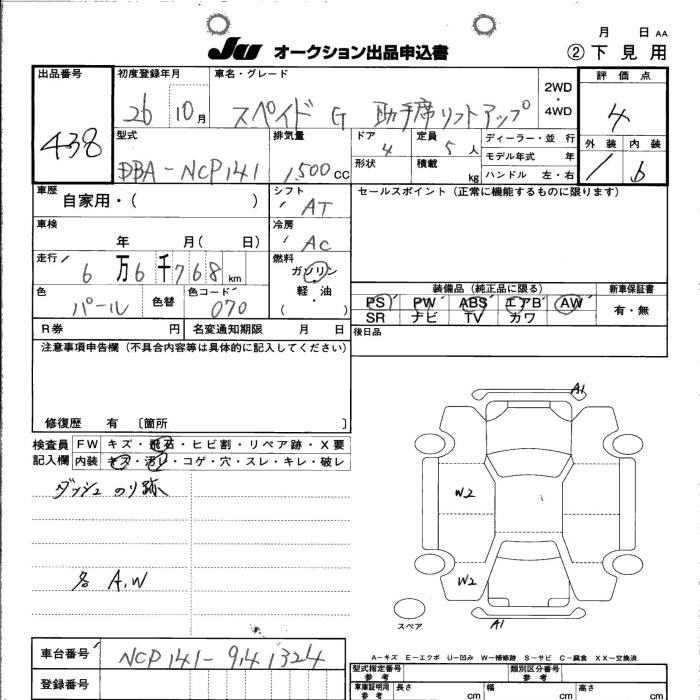 月 日 AA
JU オークション出品申込書 ②下見用
出品番号 初度登録年月 車名・グレード 2WD・4WD 評価点
438 26 10月 スペイド G 助手席リフトアップ 4
型式 排気量 ドア 定員 ディーラー・並行 外装 内装
DBA-NCP141 1,500cc 4 5人 モデル年式 年
形状 積載 kg ハンドル 左・右 b
車歴 シフト セールスポイント(正常に機能するものに限ります)
自家用・( ) AT
車検 冷房
年 月( 日) AC
走行 燃料
6万6千768km ガソリン
軽・油
( )
色 色替 色コード 装備品(純正品に限る) 新車保証書
パール 070 PS PW ABS エアB AW 有・無
SR ナビ TV カワ
R券 円 名変通知期限 月 日 後日品
注意事項申告欄(不具合内容等は具体的に記入してください)
修復歴 有 〔箇所 〕
検査員 FW キズ・飛石・ヒビ割・リペア跡・X要
記入欄 内装 キズ・汚レ・コゲ・穴・スレ・キレ・破レ
ダッシュ のり跡
A1
W2
各 A,W
W2
スペア
A1
A-キズ E-エクボ U-凹み W-補修跡 S-サビ C-腐食 XX-交換済
車台番号 NCP141-9141324
型式指定番号 類別区分番号
参考 参考
登録番号
車庫証明用 長さ 幅 高さ
参考 cm cm cm